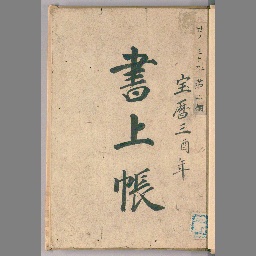 宝暦三酉年
書上帳